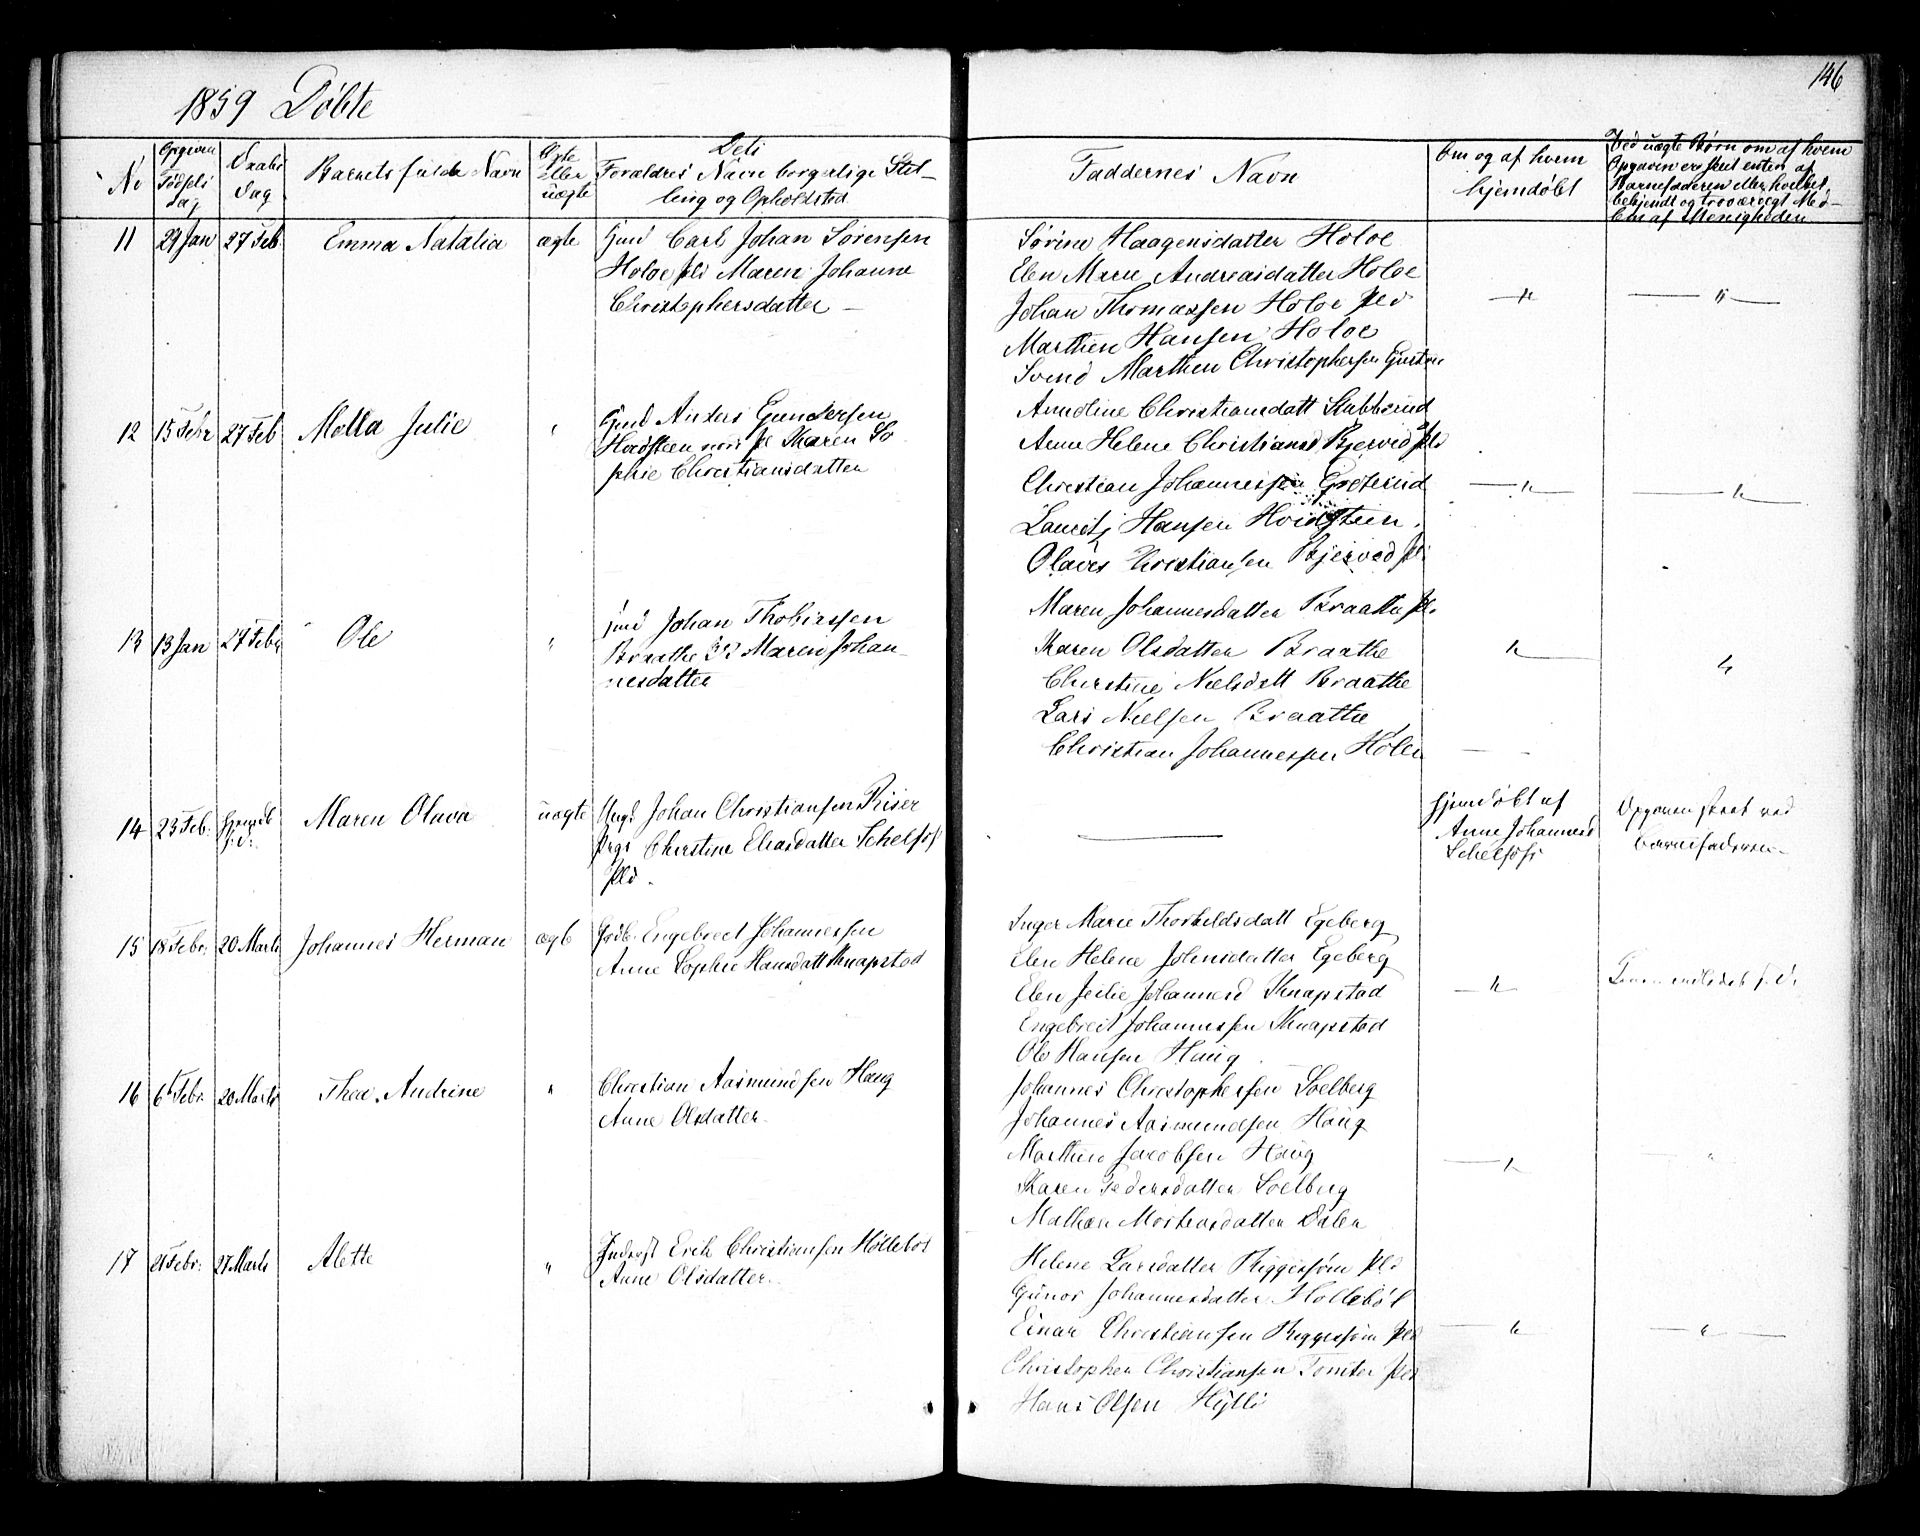 146
1859 Döbte
No
Opgiven Födsels dag
Daabs dag
Barnets fulde Navn
Ægte eller uægte
Dets Forældres Navn borgerlige Stilling og Opholdsted
Faddernes Navn
Om og af hvem hjemdöbt
Ved uægte Börn om af hvem
Opgaven er skeet enten af
Barnefaderen eller hvilket
bekjendt og troværdigt Med-
lem af Menigheden
11 29 Jan 27 Feb Emma Natalia ægte Gmd Carl Johan Sörensen
Holoe pls Maren Johanne
Christophersdatter
Sörine Haagensdatter Holoe
Elen Marie Andreasdatter Holoe
Johan Thomassen Holoe Pls
Marthin Hansen Holoe
Svend Marthin Christophersen
12 15 Febr 27 Feb Molla Julie " Gmd Anders Gundersen
Hvidsteen Karen So
phie Christiansdatter
Anne Helene Christiansd Bjerved Pls
Christian Johannessen
Lauritz Hansen Hvidsteen
Olaves Christiansen Bjerved Pl
13 13 Jan 27 Feb Ole " Gmd Johan Thobiassen
Braathe Maren Johan-
nesdatter
Maren Johannesdatter Braathe Pl
Karen Olsdatter Braathe
Christine Nielsdatt Braathe
Lars Nielsen Braathe
Christian Johannessen Holen
14 23 Feb: Hjemdb Maren Olava uægte Ungk Johan Christiansen Riser
Pige Christine Eliasdatter Schelfos
Pls.
hjemdöbt af
Anne Johannesd
Schelfos
Opgaven skeet ved
barnefaderen
15 18 Febr: 20 Marts Johannes Herman ægte Engebret Johannessen
Anne Sophie Hansdatt Knapstad
Inger Marie Thorkildsdatt Egeberg
Elen Helene Johnsdatter Egeberg
Elen Julie Johannesd Knapstad
Engebret Johannessen Knapstad
Ole Hansen Haug
16 6 Febr: 20 Marts Thea Andrine " Christian Aasmundsen Haug
Anne Olsdatter
Johannes Christophersen Soelberg
Johannes Aasmundsen Haug
Marthin Jacobsen Haug
Karen Pedersdatter Soelberg
Mathea Mortensdatter Dalen
17 21 Febr: 27 Marts Alette " Inderst Erik Christiansen Hölleböl
Anne Olsdatter
Helene Larsdatter Riggesöm Pls
Gunor Johannesdatter Hölleböl
Einar Christiansen Riggesöm Pls
Christopher Christiansen Tomter Pls
Hans Olsen Hylli